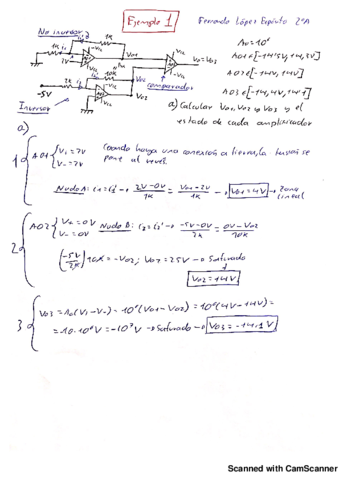 Ejemplo 1
Fernando López Expósito 2ºA
No inversor
1K
1K
2V
2K
10K
-5V
Inversor
comparador
Vo1
Vo2
Vo=Vo3
A0=10⁶
AO2 ∈ [-14V, 14V]
a) Calcular Vo1, Vo2 y Vo3 y el
estado de cada amplificador
a)
1
AO1 { V+=2V
V-=2V
Cuando haya una conexión a tierra, la tensión se
pone al nivel.
Nudo A: i1=i1' → (2V-0V)/1K = (Vo1-2V)/1K → Vo1=4V → Zona lineal
2
AO2 { V+=0V
V-=0V
Nudo B: i2=i2' → (-5V-0V)/2K = (0V-Vo2)/10K
(-5V/2K) 10K = -Vo2; Vo2=25V → Saturado
Vo2=14V
3
Vo3=A0(V+-V-)=10⁶(Vo1-Vo2)=10⁶(4V-14V)=
=-10·10⁶V=-10⁷V → Saturado → Vo3=-14.1V
Scanned with CamScanner